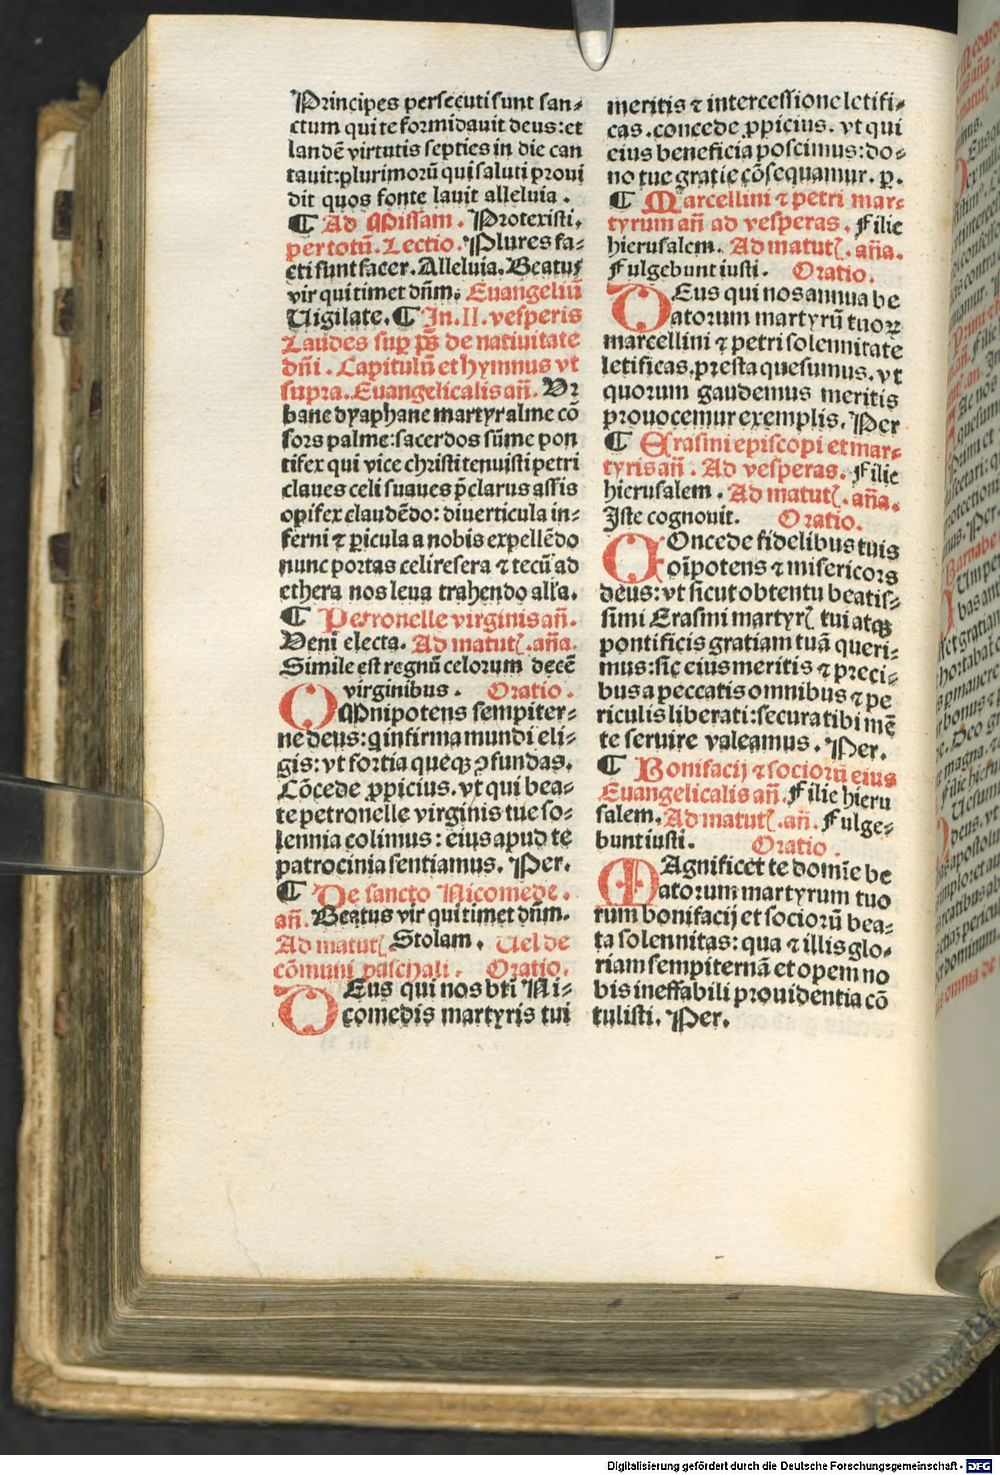 Principes persecuti sunt san⸗
ctum qui te formidauit deus: et
laudē virtutis septies in die can
tauit: plurimorū qui saluti proui
dit quos fonte lauit alleluia.
¶ Ad Missam. Protexisti.
per totū. Lectio. Plures fa⸗
cti sunt sacer. Alleluia. Beatus
vir qui timet dñm. Euangeliū
Uigilate. ¶ In. II. vesperis
Laudes sup ps̄ de natiuitate
dñi. Capitulū et hymnus vt
supra. Euangelicalis añ. Ur
bane dyaphane martyr alme cō
sors palme: sacerdos sūme pon
tifex qui vice christi tenuisti petri
claues celi suaues p̄clarus assis
opifex claudēdo: diuerticula in⸗
ferni ⁊ ꝑicula a nobis expellēdo
nunc portas celi resera ⁊ tecū ad
ethera nos leua trahendo alľa.
¶ Petronelle virginis añ.
Veni electa. Ad matutꝭ. aña.
Simile est regnū celorum decē
virginibus. Oratio.
OMnipotens sempiter⸗
ne deus: q infirma mundi eli⸗
gis: vt fortia queqꝫ ꝯfundas.
Cōcede ꝓpicius. vt qui bea⸗
te petronelle virginis tue so⸗
lennia colimus: eius apud te
patrocinia sentiamus. Per.
¶ De sancto Nicomede.
añ. Beatus vir qui timet dñm.
Ad matutꝭ Stolam. Uel de
cōmuni paschali. Oratio.
DEus qui nos bti Ni⸗
comedis martyris tui
meritis ⁊ intercessione letifi⸗
cas. concede ꝓpicius. vt qui
eius beneficia poscimus: do⸗
no tue gratie cōsequamur. p.
¶ Marcellini ⁊ petri mar⸗
tyrum añ ad vesperas. Filie
hierusalem. Ad matutꝭ. aña.
Fulgebunt iusti. Oratio.
DEus qui nos annua be
atorum martyrū tuoꝝ
marcellini ⁊ petri solennitate
letificas. presta quesumus. vt
quorum gaudemus meritis
prouocemur exemplis. Per
¶ Erasmi episcopi et mar⸗
tyris añ. Ad vesperas. Filie
hierusalem. Ad matutꝭ. aña.
Iste cognouit. Oratio.
COncede fidelibus tuis
oīpotens ⁊ misericors
deus: vt sicut obtentu beatis⸗
simi Erasmi martyrꝭ tui atqꝫ
pontificis gratiam tuā queri⸗
mus: sic eius meritis ⁊ preci⸗
bus a peccatis omnibus ⁊ pe
riculis liberati: secura tibi mē
te seruire valeamus. Per.
¶ Bonifacij ⁊ sociorū eius
Euangelicalis añ. Filie hieru
salem. Ad matutꝭ. añ. Fulge⸗
bunt iusti. Oratio.
MAgnificēt te domīe be
atorum martyrum tuo
rum bonifacij et sociorū bea⸗
ta solennitas: qua ⁊ illis glo⸗
riam sempiternā et opem no
bis ineffabili prouidentia cō
tulisti. Per.
Digitalisierung gefördert durch die Deutsche Forschungsgemeinschaft - DFG